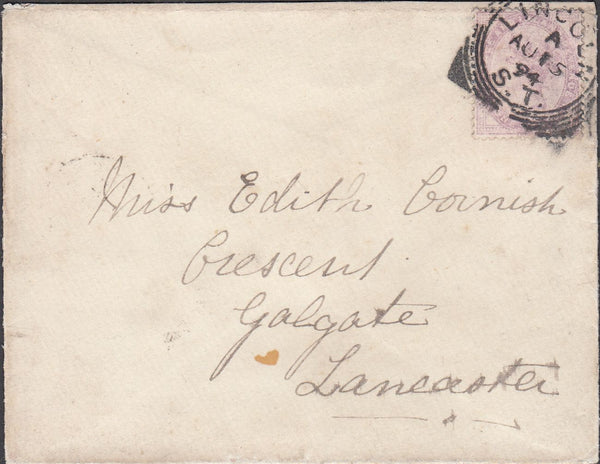 LINCOLN
A
AU 15
94
S.T.
Miss Edith Cornish
Crescent
Galgate
Lancaster